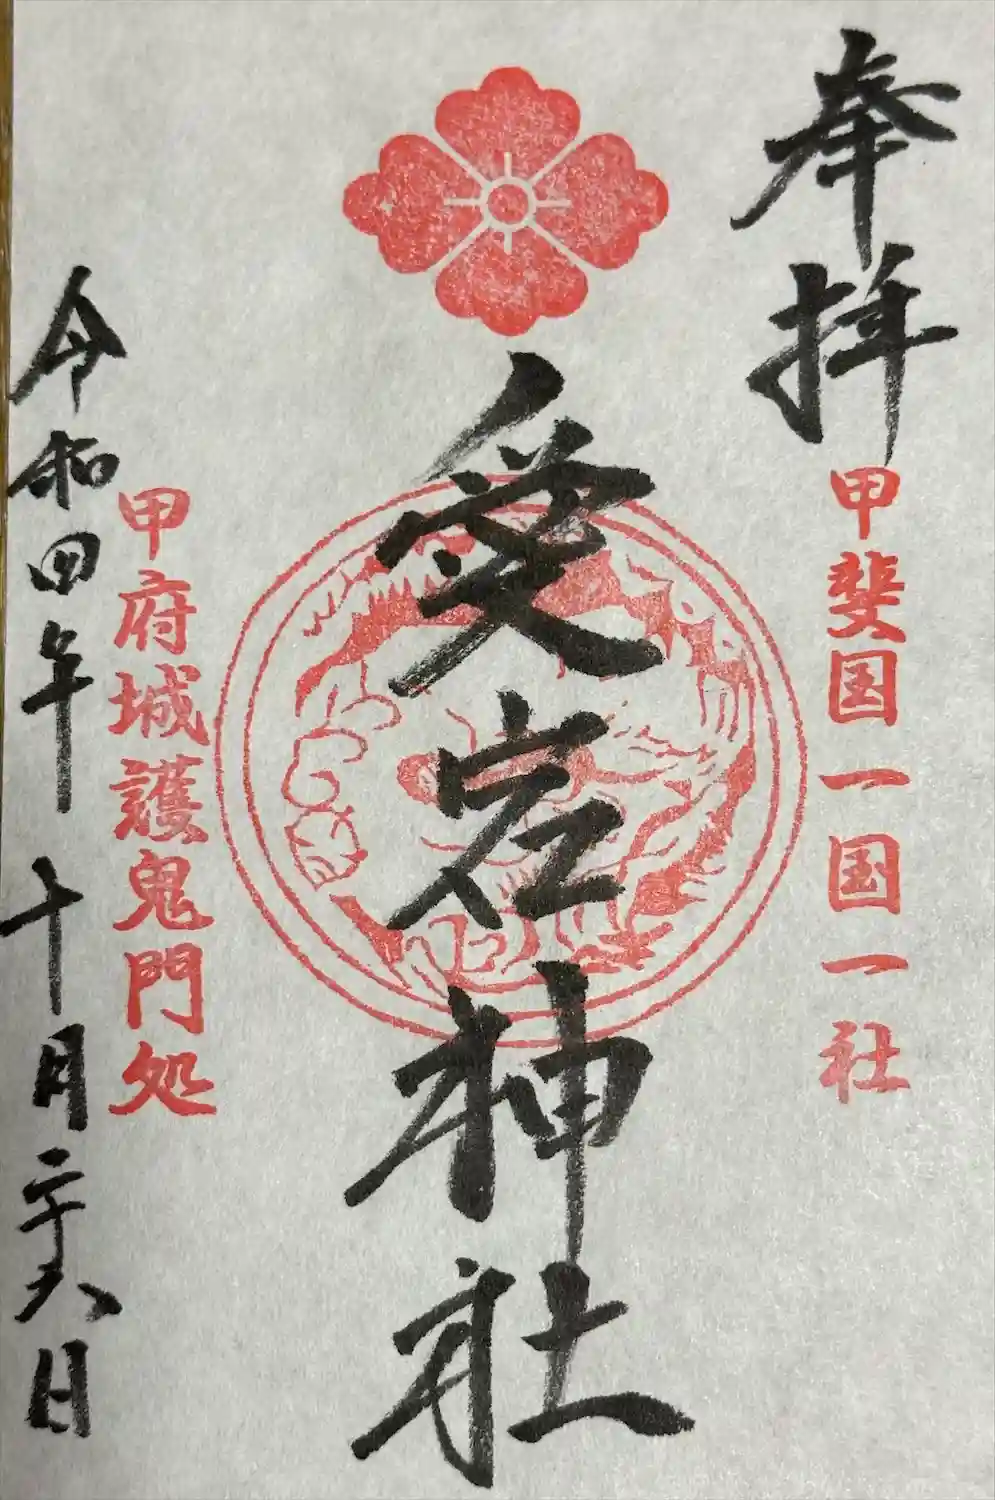 奉拝
甲斐国一国一社
愛宕神社
甲府城護鬼門処
令和四年十月二十六日